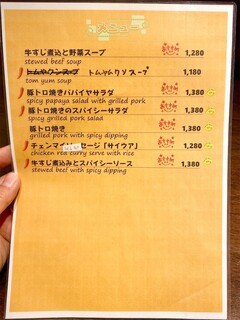 牛すじ煮込と野菜スープ 1,280
stewed beef soup
トムヤクンスープ トムヤムクンスープ 1,180
tom yum soup
豚トロ焼きパパイヤサラダ 1,380
spicy papaya salad with grilled pork
豚トロ焼きのスパイシーサラダ 1,380
spicy grilled pork salad
豚トロ焼き 1,380
grilled pork with spicy dipping
チェンマイ セージ「サイウア」 1,280
chicken red curry serve with rice
牛すじ煮込みとスパイシーソース 1,380
stewed beef with spicy dipping